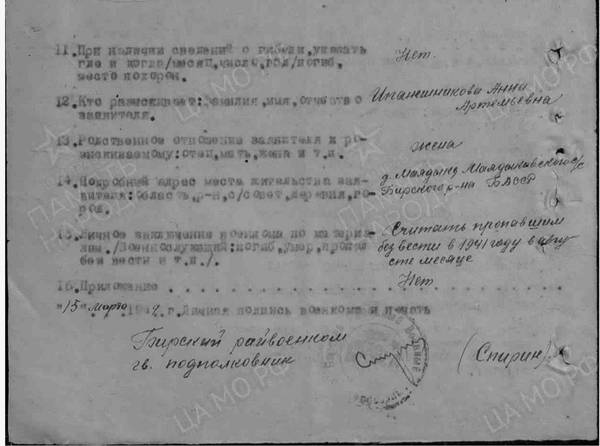 11.При наличии сведений о гибели,указать
где и когда/месяц,число,год/погиб,
место похорон.
Нет.
12.Кто разыскивает:фамилия,имя,отчество
заявителя.
Ипаншникова Анна
Артемьевна
13.Родственное отношение заявителя к ро-
зыскиваемому:отец,мать,жена и т.п.
жена
14.Подробный адрес места жительства зая-
вителя:область,р-н,с/совет,деревня,го-
род.
д. Маядыко Маядыковского с/с
Бирского р-на БАССР
15.Личное заключение военкома по материа-
лам./Военнослужащий:погиб,умер,пропал
без вести и т.п./.
Считать пропавшим
без вести в 1941 году в авгу
сте месяце
16.Приложение . . . . . . . . . . . .
Нет
"15" марта 194 г.Личная подпись военкома и печать
Бирский райвоенком
гв. подполковник
(Спирин)
ЦА МО РФ